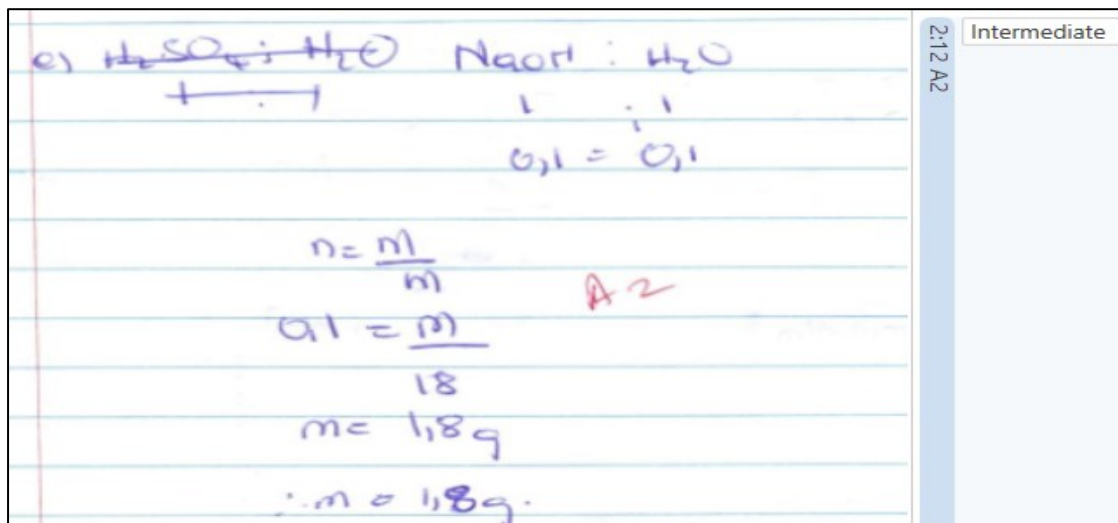 e) H₂SO₄ : H₂O NaOH : H₂O
1 : 1
1 : 1
0,1 = 0,1
n = m
m
A2
0,1 = m
18
m = 1,8g
∴ m = 1,8g.
2:12 A2
Intermediate